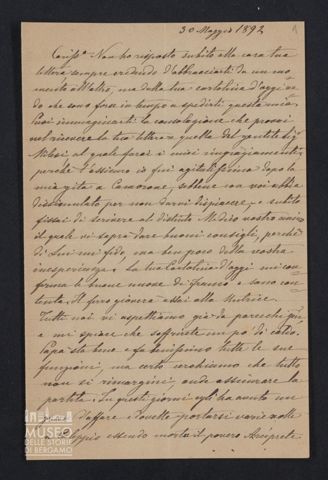 30 Maggio 1892
Cariss.ª Non ho risposto subito alla cara tua
lettera sempre credendo d'abbracciarti da un mo
mento all'altro, ma dalla tua cartolina d'oggi ve
do che sono fora in tempo a spedirti questa mia.
Puoi immaginarti la consolazione che provai
nel ricevere la tua lettera e quella del gentile Sig.
al quale farai i miei ringraziamenti
perchè t'assicuro io fui agitatissima dopo la
mia gita a sebbene con voi abbia
dissimulato per non darvi dispiacere, e subito
fissai di scrivere al distinto Medico nostro
il quale vi saprà dare buoni consigli, perchè
di Lui mi fido, ma ben poco della vostra
inesperienza. La tua Cartolina d'oggi mi con
ferma le buone nuove di Franco e sono con
tenta. Il ferro gioverà assai alla Nutrice.
Tutti noi vi aspettiamo già da parecchi giorni
e mi spiace che soffriate un po' di caldo.
Papà sta bene e fa benissimo tutte le sue
funzioni, ma certo crediamo che tutto
non si rimargini, onde assicurare la
partita. In questi giorni egli ha avuto un
daffare e dovette portarsi varie volte
essendo morto il povero Arciprete
MUSEO
DELLE STORIE
DI BERGAMO